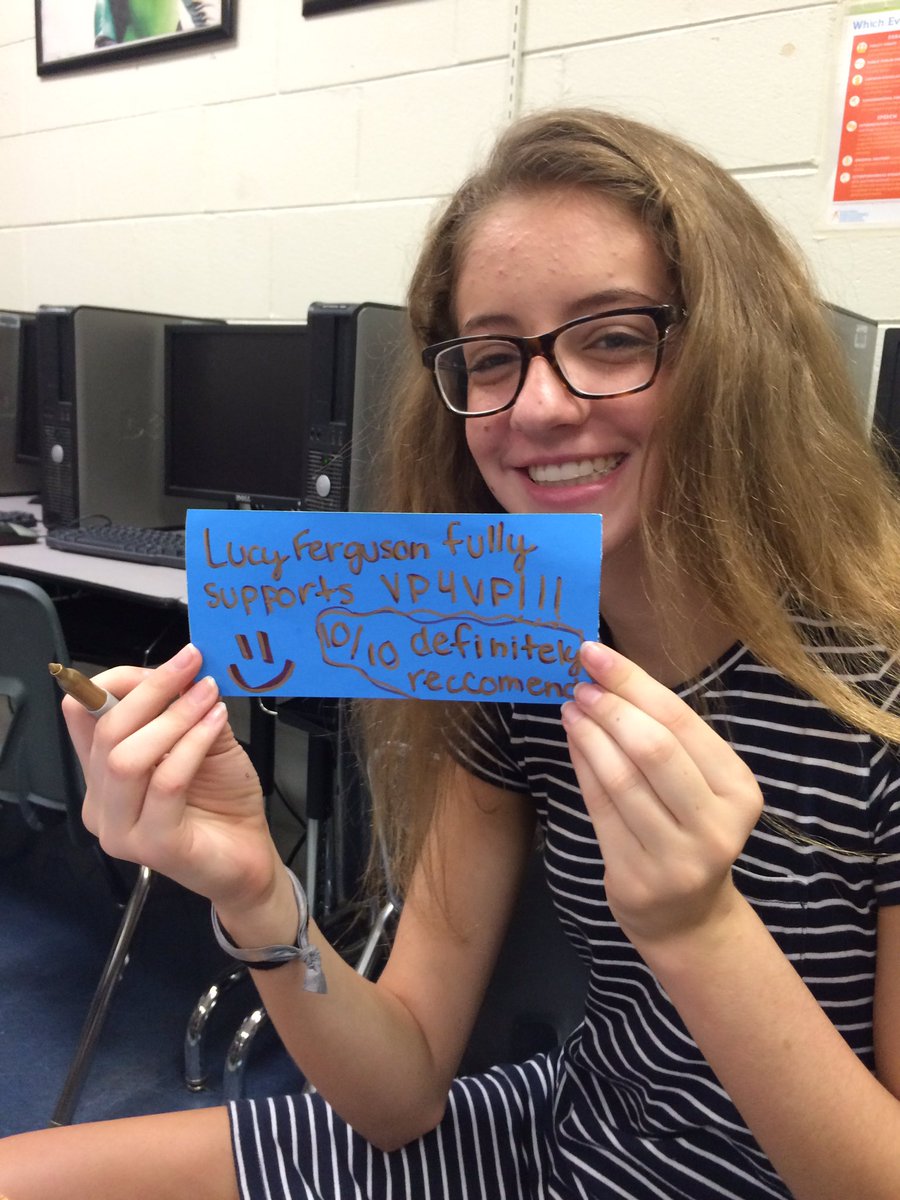 Lucy Ferguson fully
supports VP4VP!!!
10/10 definitely
reccomend
Which Ev
DELL